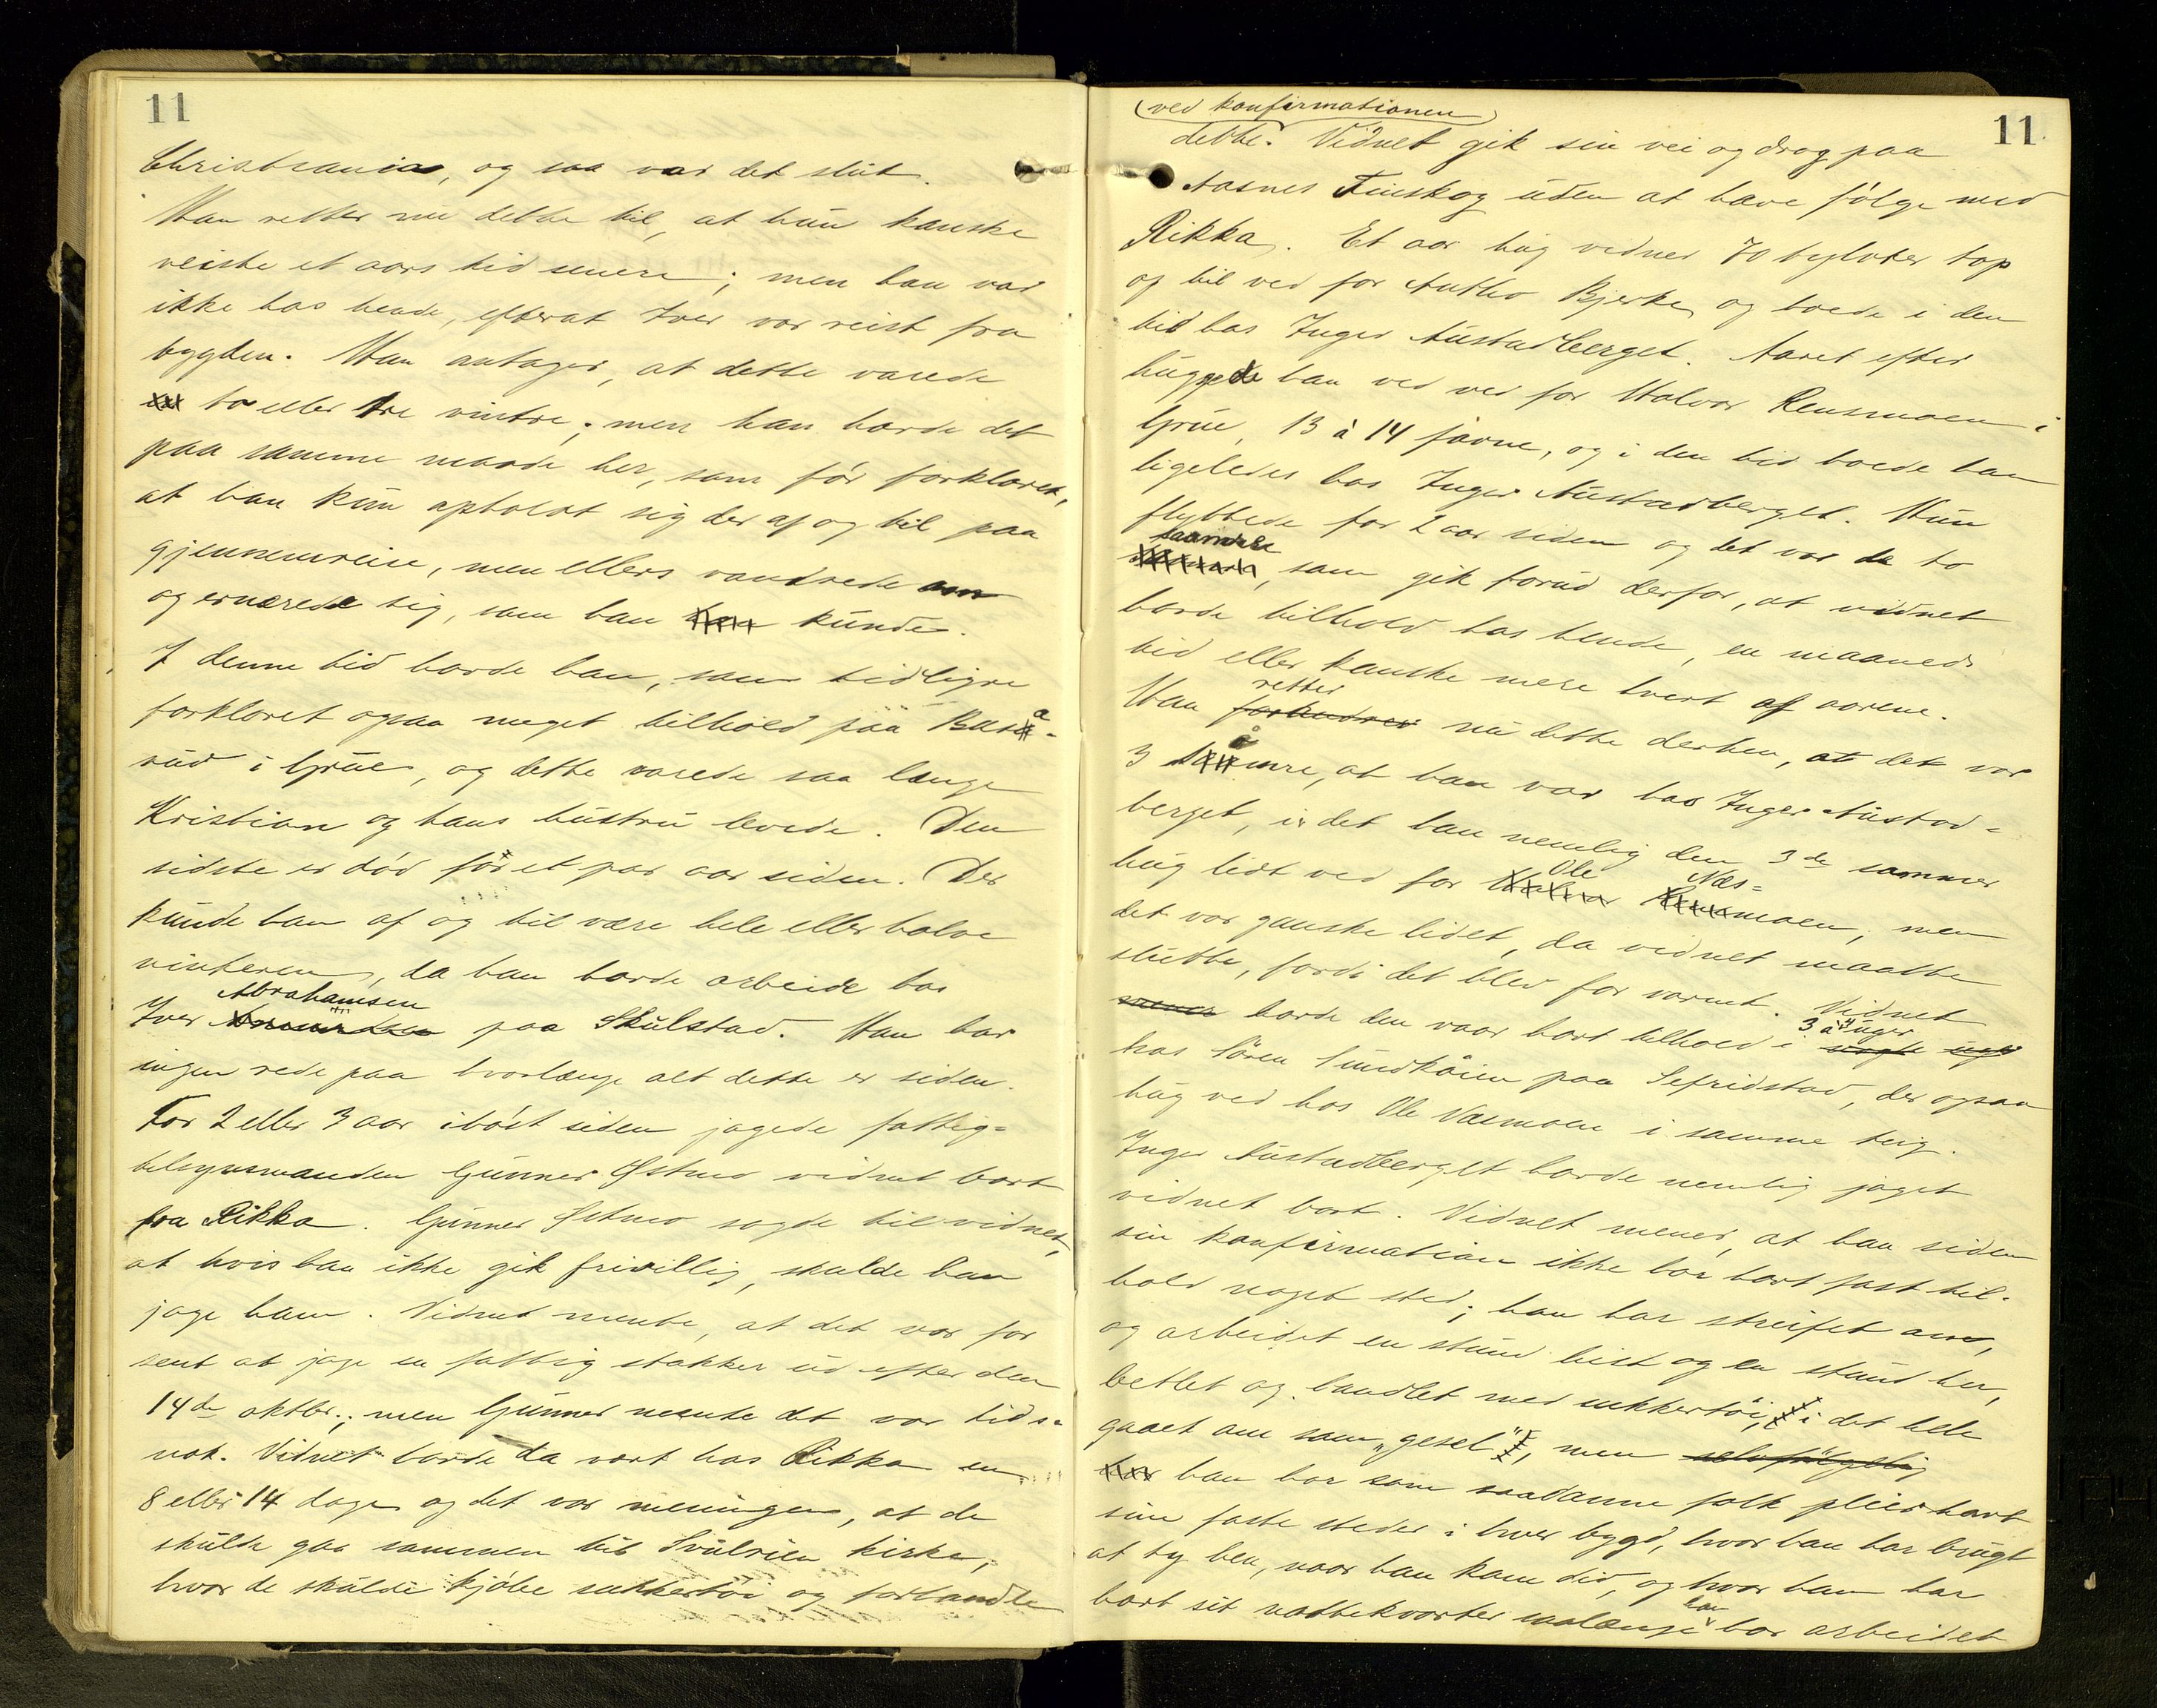 11
Christiania, og saa var det slut.
Han retter nu dette til, at hun kanske
reiste et aars tid senere; men han var
ikke hos hende, efterat Iver var reist fra
bygden. Han antager, at dette varede
to eller tre vintre; men han havde det
paa samme maade her, som før forklaret,
at han kun opholdt sig der af og til paa
gjennemreise, men ellers vandrede om
og ernærede sig, som han kunde.
I denne tid havde han, som tidligere
forklaret ogsaa meget tilhold paa Basa-
rud i Grue, og dette varede saa længe
Kristian og hans hustru levede. Den
sidste er død for et par aar siden. Der
kunde han af og til være hele eller halve
vinteren, da han havde arbeide hos
Abrahamsen
Iver paa Skulstad. Han har
ingen rede paa hvorlænge alt dette er siden.
For 2 eller 3 aar ihøst siden jagede fattig-
tilsynsmanden Gunner Østmo vidnet bort
fra Rikka. Gunner Østmo sagde til vidnet,
at hvis han ikke gik frivillig, skulde han
jage ham. Vidnet mente, at det var for
sent at jage en fattig stakker ud efter den
14de oktbr.; men Gunner mente det var tids-
nok. Vidnet havde da vært hos Rikka en
8 eller 14 dage og det var meningen, at de
skulde gaa sammen til Svulrien kirke,
hvor de skulde kjøbe sukkertøi og forhandle
11
(ved konfirmationen)
dette. Vidnet gik sin vei og drog paa
Aasnes Finskog uden at have følge med
Rikka. Et aar hug vidnet 70 tylvter top
op til ved for Anthro Bjerke, og boede i den
tid hos Inger Austadberget. Aaret efter
huggede han ved ved for Halvor Rensmoen i
Grue, 13 à 14 favne, og i den tid boede han
ligeledes hos Inger Austadberget. Hun
flyttede for 2 aar siden og det var de to
saamre
, som gik forud derfor, at vidnet
havde tilhold hos hende, en maaneds
tid eller kanske mere hvert af aarene.
retter
Han forandrer nu dette derhen, at det var
3 såmre, at han var hos Inger Austad-
berget, idet han nemlig den 3de sommer
Ole Næs-
hug lidt ved for moen, men
det var ganske lidet, da vidnet maatte
slutte, fordi det blev for varmt. Vidnet
3 à 4 uger
havde den vaar havt tilhold i
hos Søren Sundkåien paa Sefridstad, der ogsaa
hug ved hos Ole Næsmoen i samme teig.
Inger Austadberget havde nemlig jaget
vidnet bort. Vidnet mener, at han siden
sin konfirmation ikke har havt fast til-
hold noget sted; han har streifet om,
og arbeidet en stund hist og en stund her,
betlet og handlet med sukkertøi, i det hele
gaaet om som „gesel", men selvfølgelig
han har som saadanne folk pleier havt
sine faste steder i hver bygd, hvor han har brugt
at ty hen, naar han kom did, og hvor han har
han
havt sit nattekvarter saalænge har arbeidet